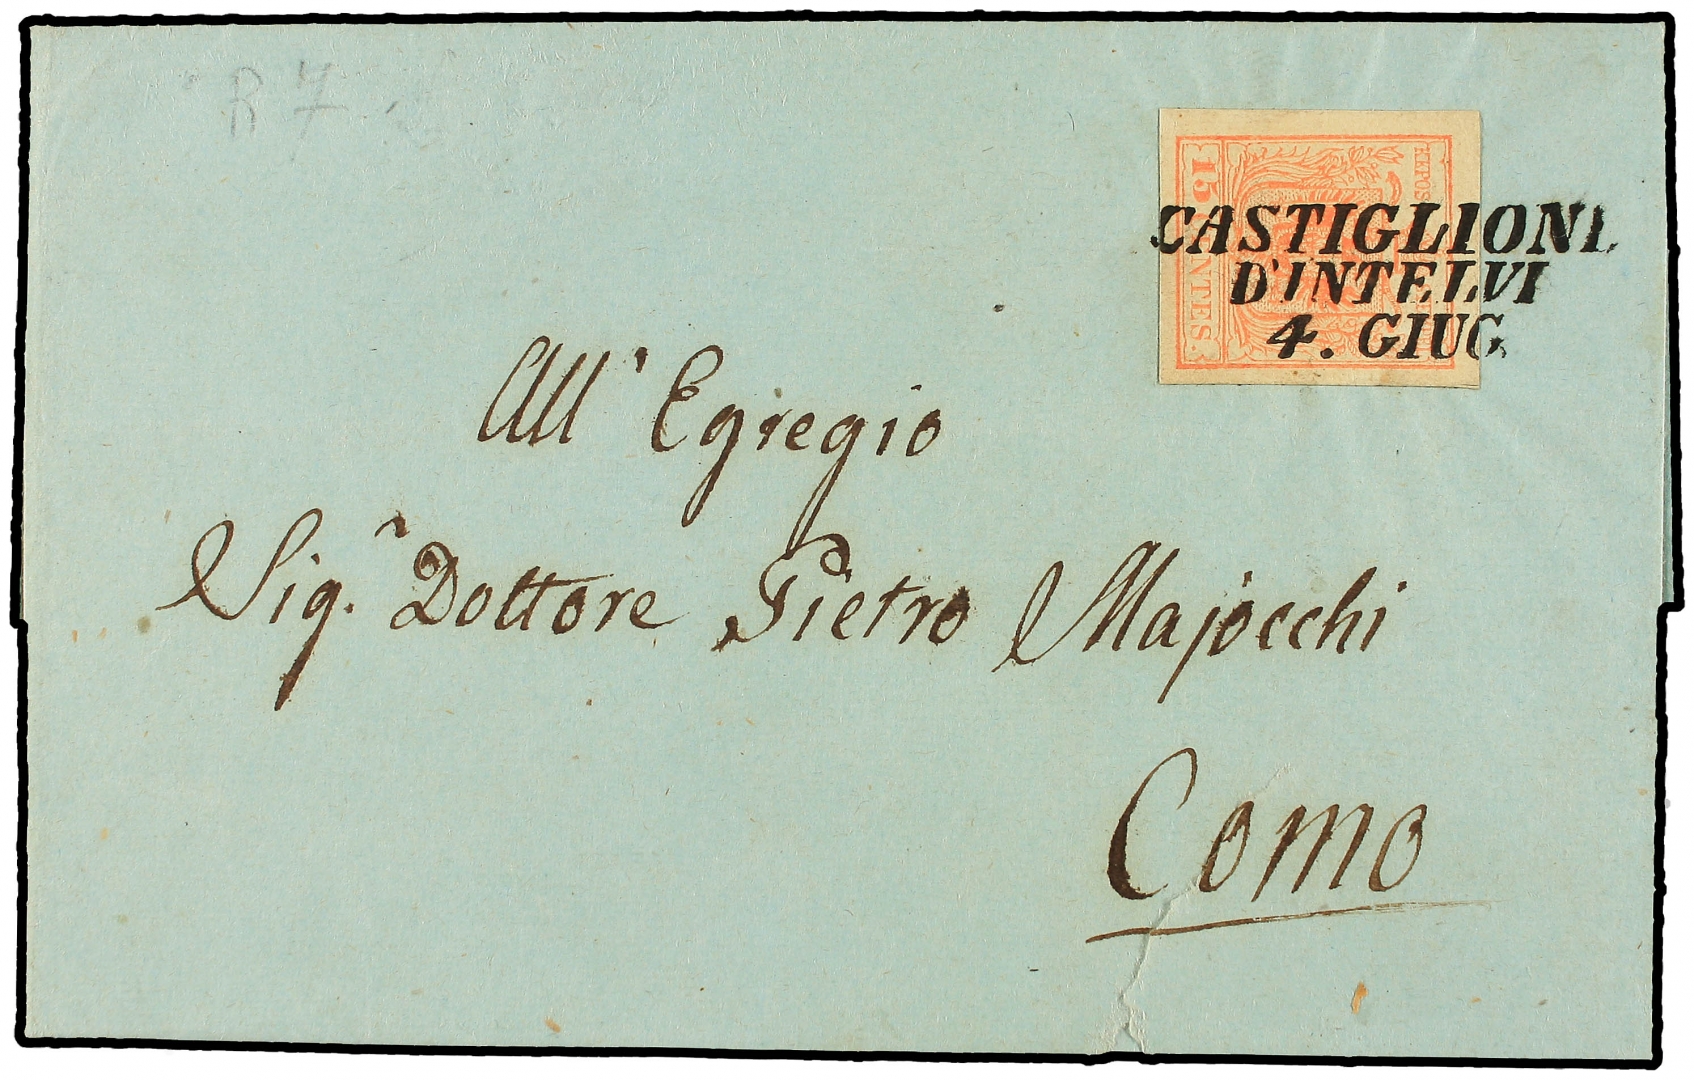 R 7
15 CENTES.
CASTIGLIONE
D'INTELVI
4. GIUG.
All' Egregio
Sig.r Dottore Pietro Majocchi
Como